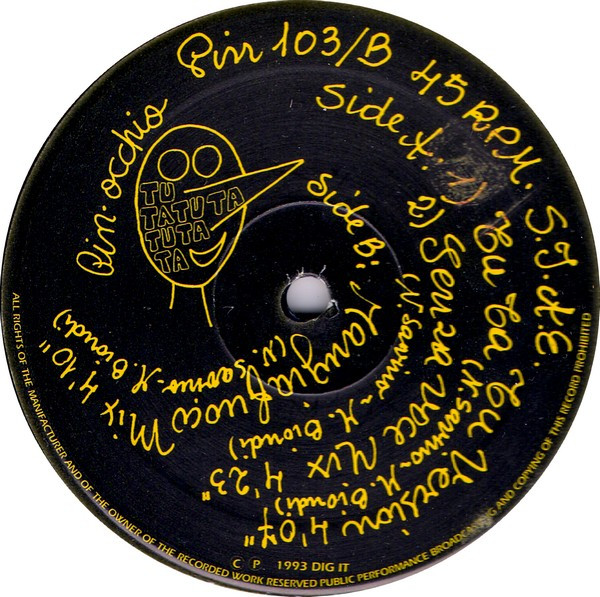 Pin 103/B 45 R.P.M. S.I.A.E.
Pin·occhio
TU
TATUTA
TUTA
TA
Side A: 1) Tu Ta Tu Version 4'07"
(N. Savino - M. Biondi)
2) Senza voce Mix 4'23"
(N. Savino - M. Biondi)
Side B: Mangiafuoco Mix 4'10"
(N. Savino - M. Biondi)
ALL RIGHTS OF THE MANUFACTURER AND OF THE OWNER OF THE RECORDED WORK RESERVED PUBLIC PERFORMANCE BROADCASTING AND COPYING OF THIS RECORD PROHIBITED
C P 1993 DIG IT